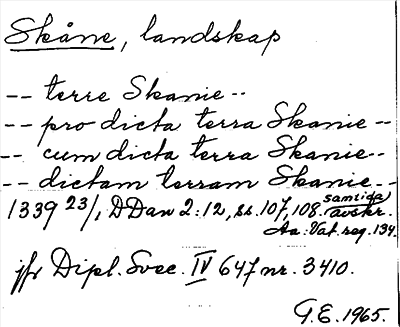 Skåne, landskap
-- terre Skanie --
-- pro dicta terra Skanie --
-- cum dicta terra Skanie --
-- dictam terram Skanie --
1339 23/1, DDan 2:12, ss. 107, 108. samtida avskr.
Aa: Vat. reg. 134.
jfr Dipl. Svec. IV 647 nr. 3410.
G.E. 1965.